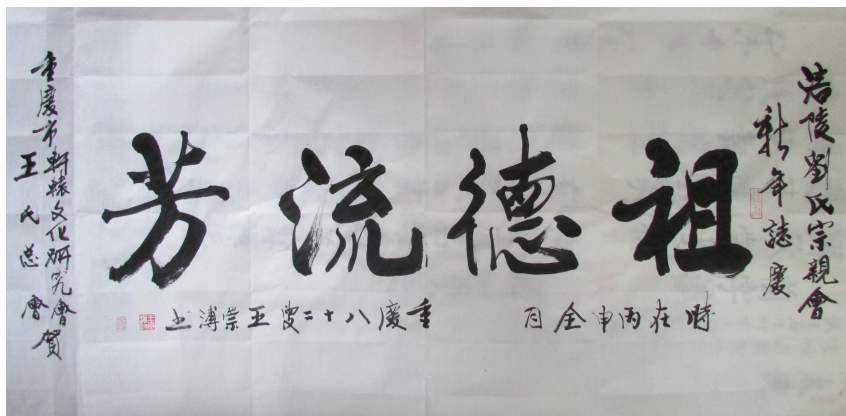 涪陵劉氏宗親會
新年誌慶
祖德流芳
時在丙申全月
重慶八十二叟王崇溥书
重慶市軒轅文化研究會賀
王氏总會